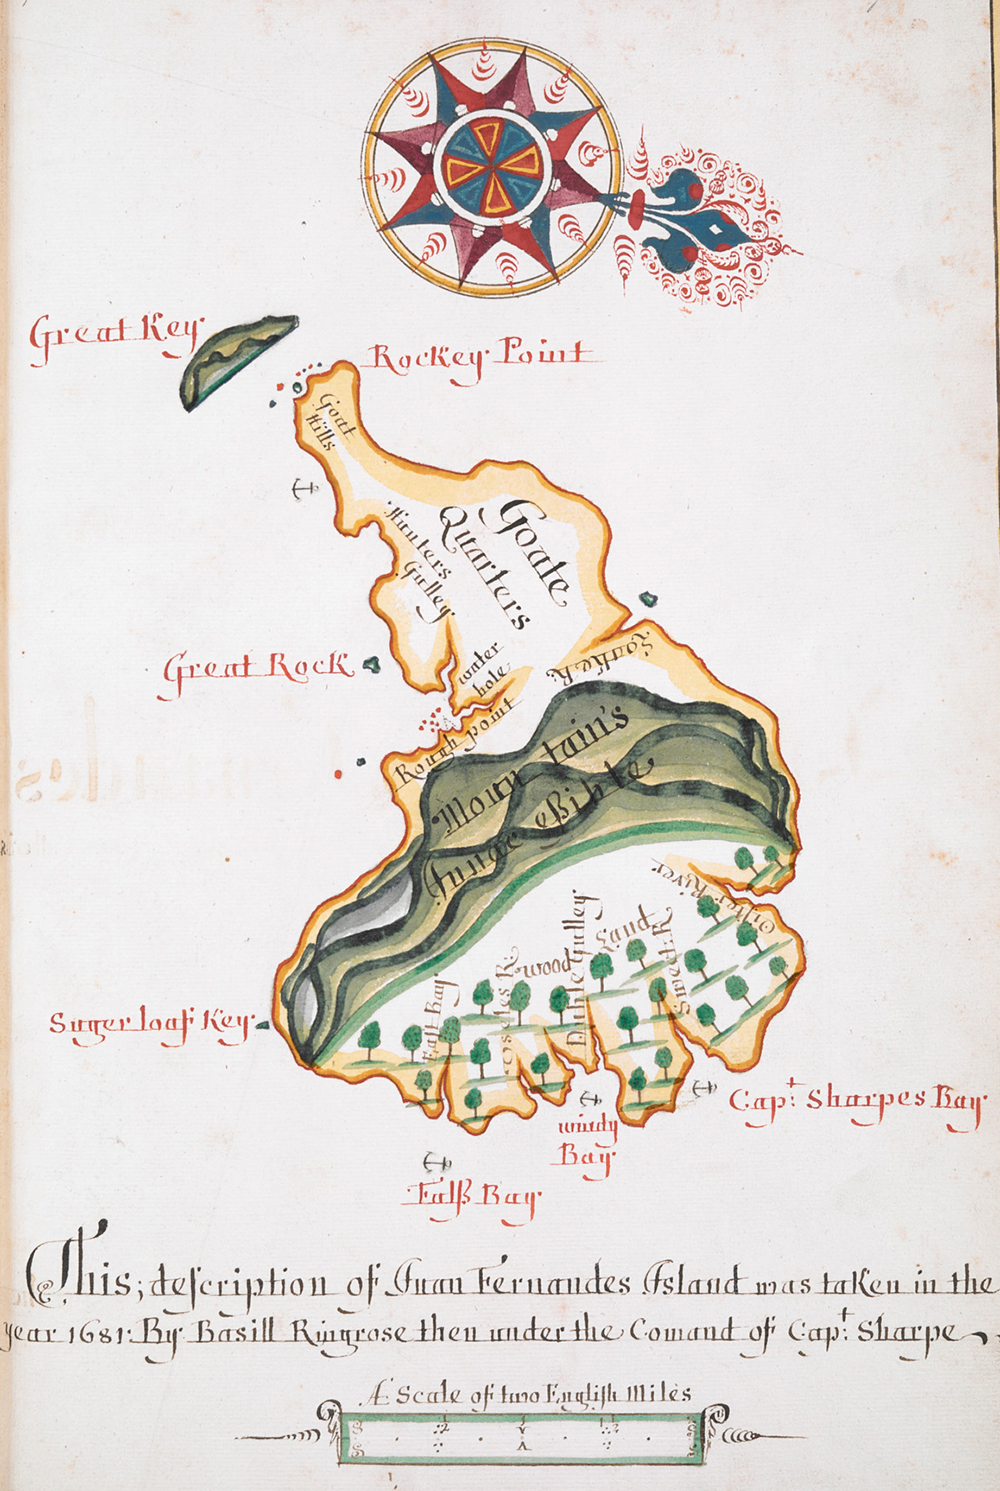 Great Key
Rockey Point
Goat
Hills
Goate
Quarters
Hunters
Gulley
water
hole
Great Rock
Rough point
Mountain's
Sugerloaf Key
wood Land
Double Gulley
Fals Bay
windy
Bay
Capt: Sharpes Bay
Falß Bay
This; deſcription of Juan Fernandes Iſland was taken in the
year 1681: By Basill Ringrose then under the Comand of Capt: Sharpe
A Scale of two Engliſh Miles